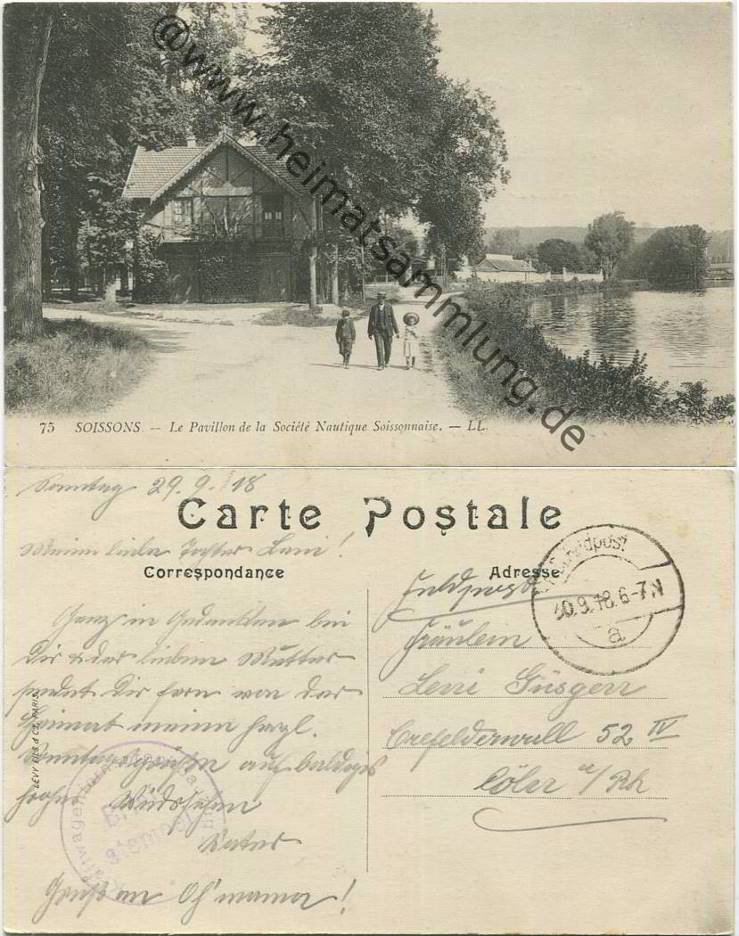 @www.heimatsammlung.de
75 SOISSONS. — Le Pavillon de la Société Nautique Soissonnaise. — LL.
Sonntag 29.9.18
Carte Postale
Meine liebe Tochter Leni!
Correspondance
Adresse
Ganz in Gedanken bei
Dir & der lieben Mutter
sendet Dir fern von der
Heimat meine herzl.
Sonntagsgrüße auf baldiges
frohes Wiedersehen
Vater
Gruß an Oh'mama!
LEVY FILS & Cie, PARIS
Brief
stempel
Feldpost
Fräulein
Leni Güsgen
Crefelderwall 52 IV
Cöln a/Rh
Feldpost
30.9.18.6-7N
a